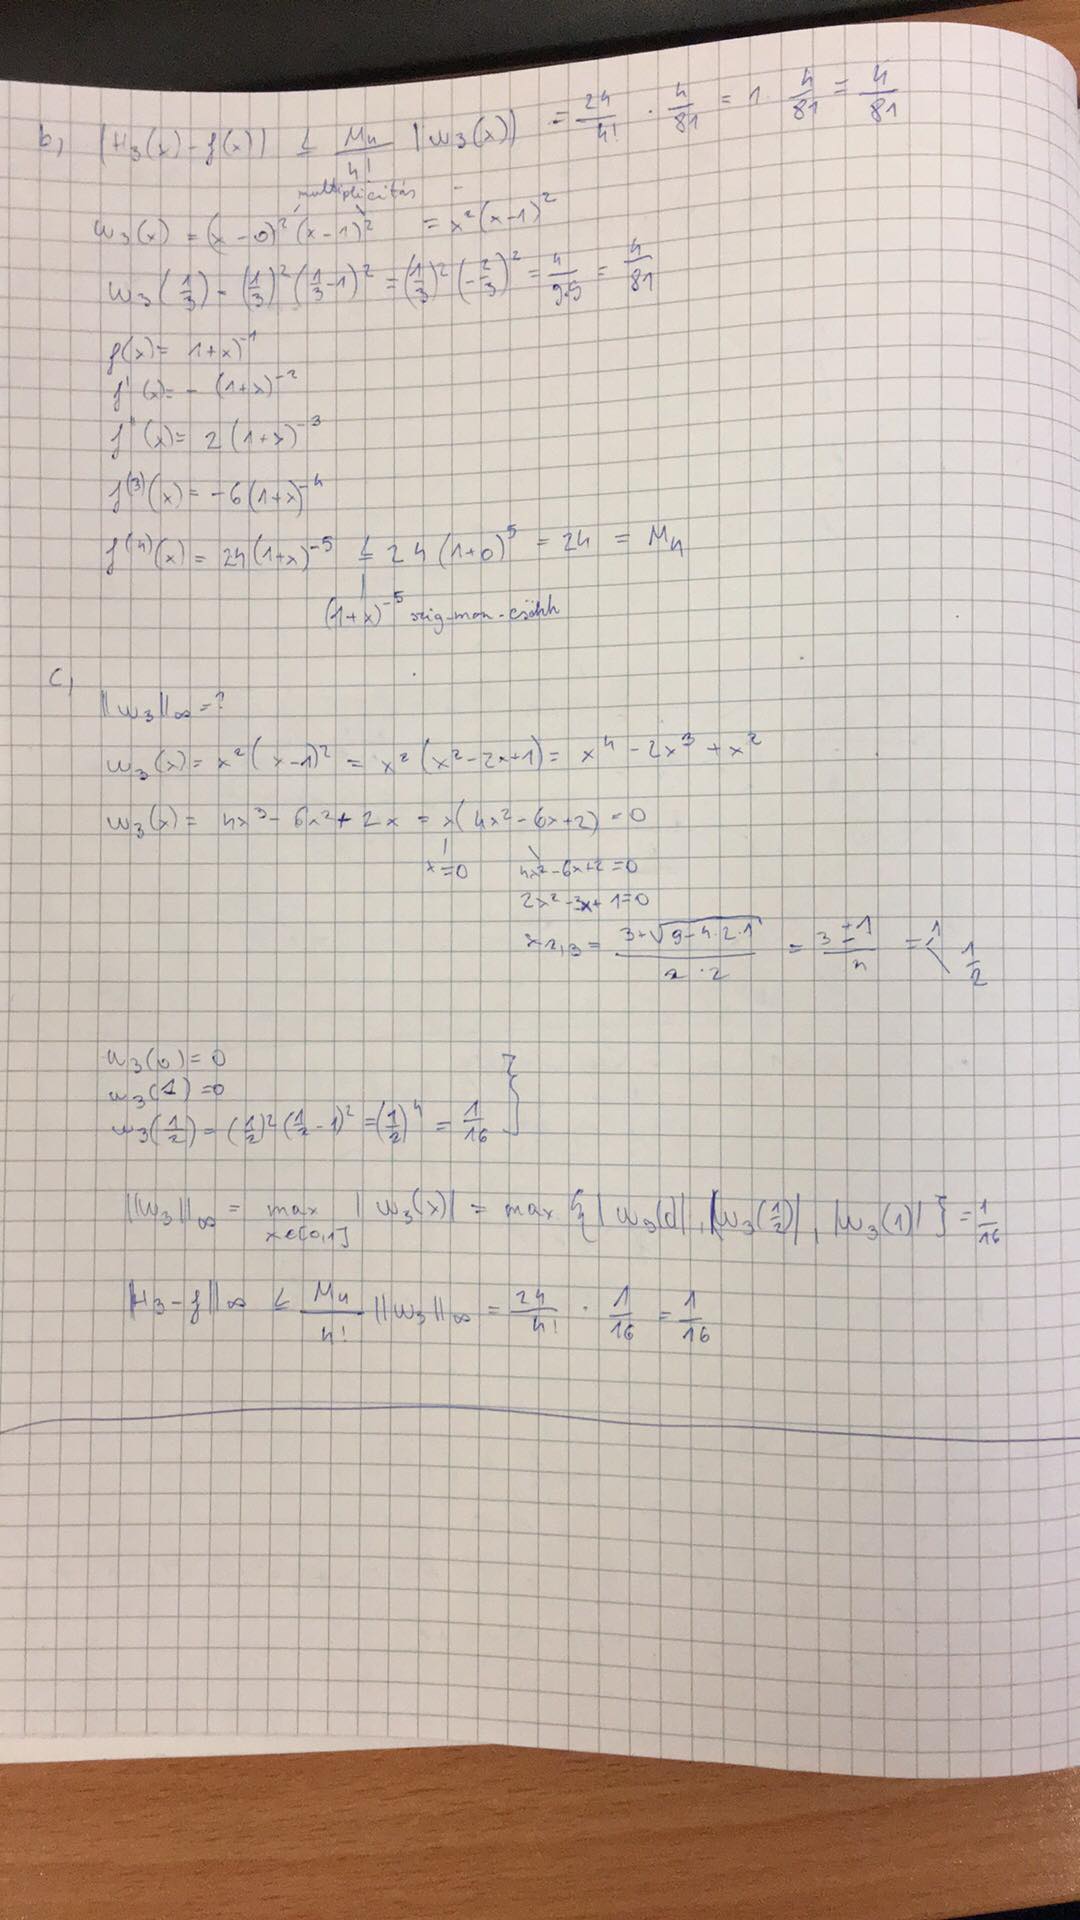 b, |H₃(x) - f(x)| ≤ M₄/4! |w₃(x)| = 24/4! · 4/81 = 1 · 4/81 = 4/81
multiplicitás
w₃(x) = (x - 0)² (x - 1)² = x²(x-1)²
w₃(1/3) = (1/3)² (1/3 - 1)² = (1/3)² (-2/3)² = 4/9·9 = 4/81
f(x) = 1+x)⁻¹
f'(x) = - (1+x)⁻²
f''(x) = 2(1+x)⁻³
f⁽³⁾(x) = -6(1+x)⁻⁴
f⁽⁴⁾(x) = 24(1+x)⁻⁵ ≤ 24(1+0)⁵ = 24 = M₄
(1+x)⁻⁵ szig-mon-csökk
c,
||w₃||∞ = ?
w₃(x) = x²(x-1)² = x²(x²-2x+1) = x⁴ - 2x³ + x²
w₃(x) = 4x³ - 6x² + 2x = x(4x² - 6x + 2) = 0
x=0 4x²-6x+2=0
2x²-3x+1=0
x₂,₃ = 3+√9-4·2·1 / 2·2 = 3±1/4 = 1 1/2
w₃(0) = 0
w₃(1) = 0
w₃(1/2) = (1/2)² (1/2 - 1)² = (1/2)⁴ = 1/16 }
||w₃||∞ = max x∈[0,1] |w₃(x)| = max {|w₃(0)|, |w₃(1/2)|, |w₃(1)|} = 1/16
||H₃ - f||∞ ≤ M₄/4! ||w₃||∞ = 24/4! · 1/16 = 1/16